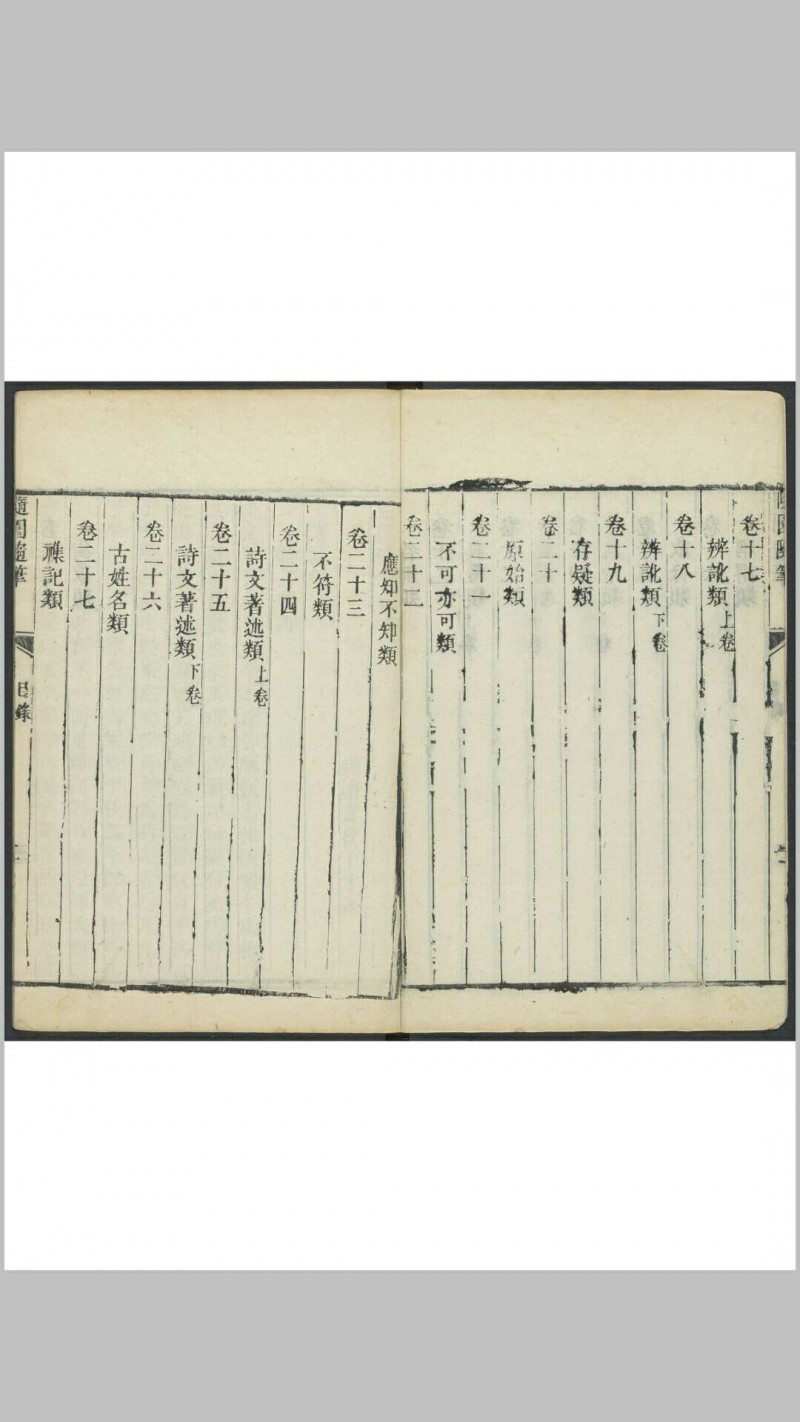 卷十七
辨訛類上卷
卷十八
辨訛類下卷
卷十九
存疑類
卷二十
原始類
卷二十一
不可亦可類
卷二十二
應知不知類
卷二十三
不符類
卷二十四
詩文著述類上卷
卷二十五
詩文著述類下卷
卷二十六
古姓名類
卷二十七
襍記類
隨園隨筆
目錄